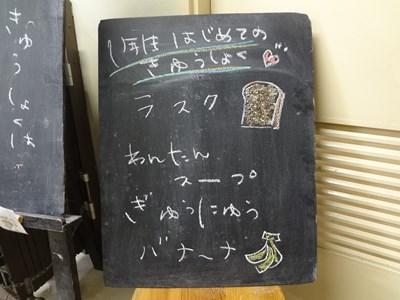 1年生 はじめての
きゅうしょく
ラスク
わんたん
スープ
ぎゅうにゅう
バナーナ
きゅうしょくは